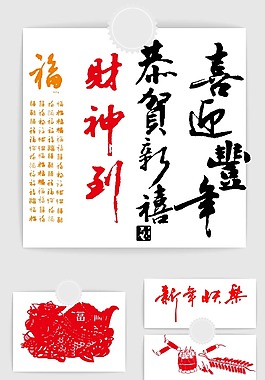 喜迎豐年
恭賀新禧
財神到
福
新年快樂
福